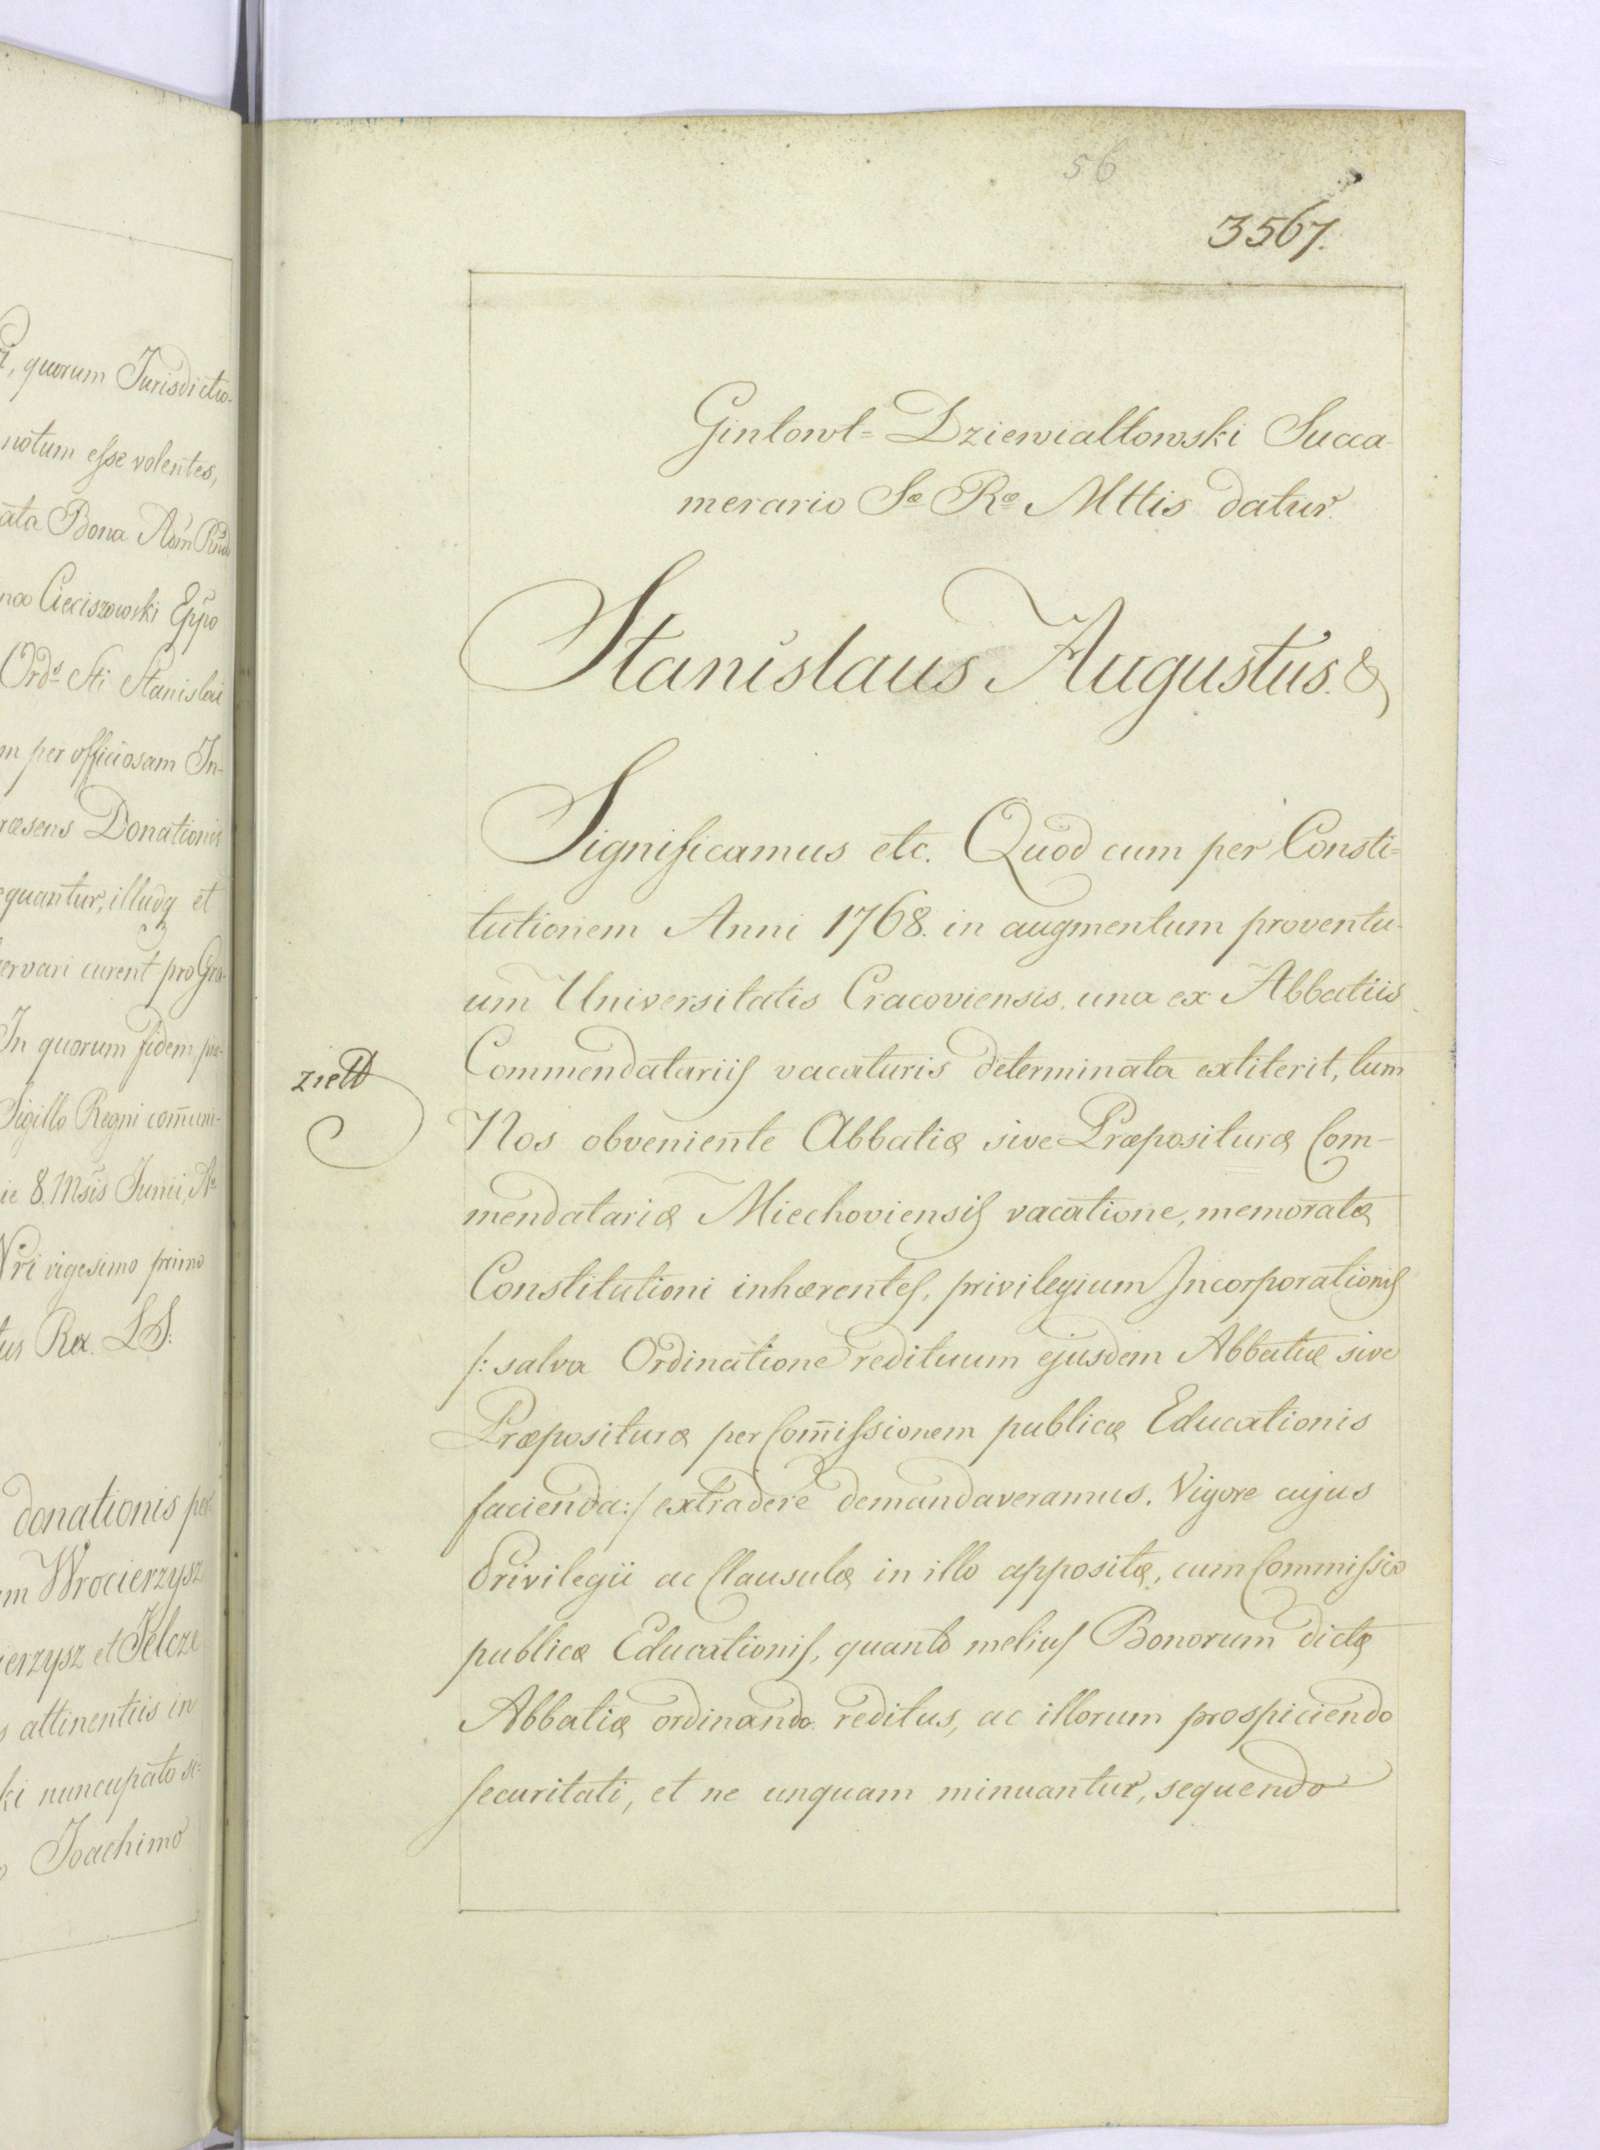 i, quorum Jurisdictio-
notum esse volentes,
ata Bona Adm Rndo
Cieciszowski Eppo
Ords Sti Stanislai
m per officiosam In-
ræsens Donationis
equantur, illudq et
servari curent pro Gra-
In quorum fidem præ-
Sigillo Regni com̄uni-
ie 8. Msis Junii, Ao
Nri vigesimo primo
tus Rex. LS.
donationis per
m Wrocierzysz
ierzysz et Jelcze
s attinentiis in
ki nuncupato
Joachimo
56
3567.
Gintowt= Dziewiałtowski Succa-
merario Sæ Ræ Mttis datur.
Stanislaus Augustus. &
Significamus etc. Quod cum per Consti=
tutionem Anni 1768. in augmentum proventu-
um Universitatis Cracoviensis, una ex Abbatiis
Commendatariis vacaturis determinata extiterit, tum
Nos obveniente Abbatiæ sive Præposituræ Com-
mendatariæ Miechoviensis vacatione, memoratæ
Constitutioni inhærentes, privilegium Incorporationis
/: salva Ordinatione redituum ejusdem Abbatiæ sive
Præposituræ per Com̄issionem publicæ Educationis
facienda:/ extradere demandaveramus. Vigore cujus
Privilegii ac Clausulæ in illo appositæ, cum Commissio
publicæ Educationis, quanto melius Bonorum dictæ
Abbatiæ ordinando reditus, ac illorum prospiciendo
securitati, et ne unquam minuantur, sequendo